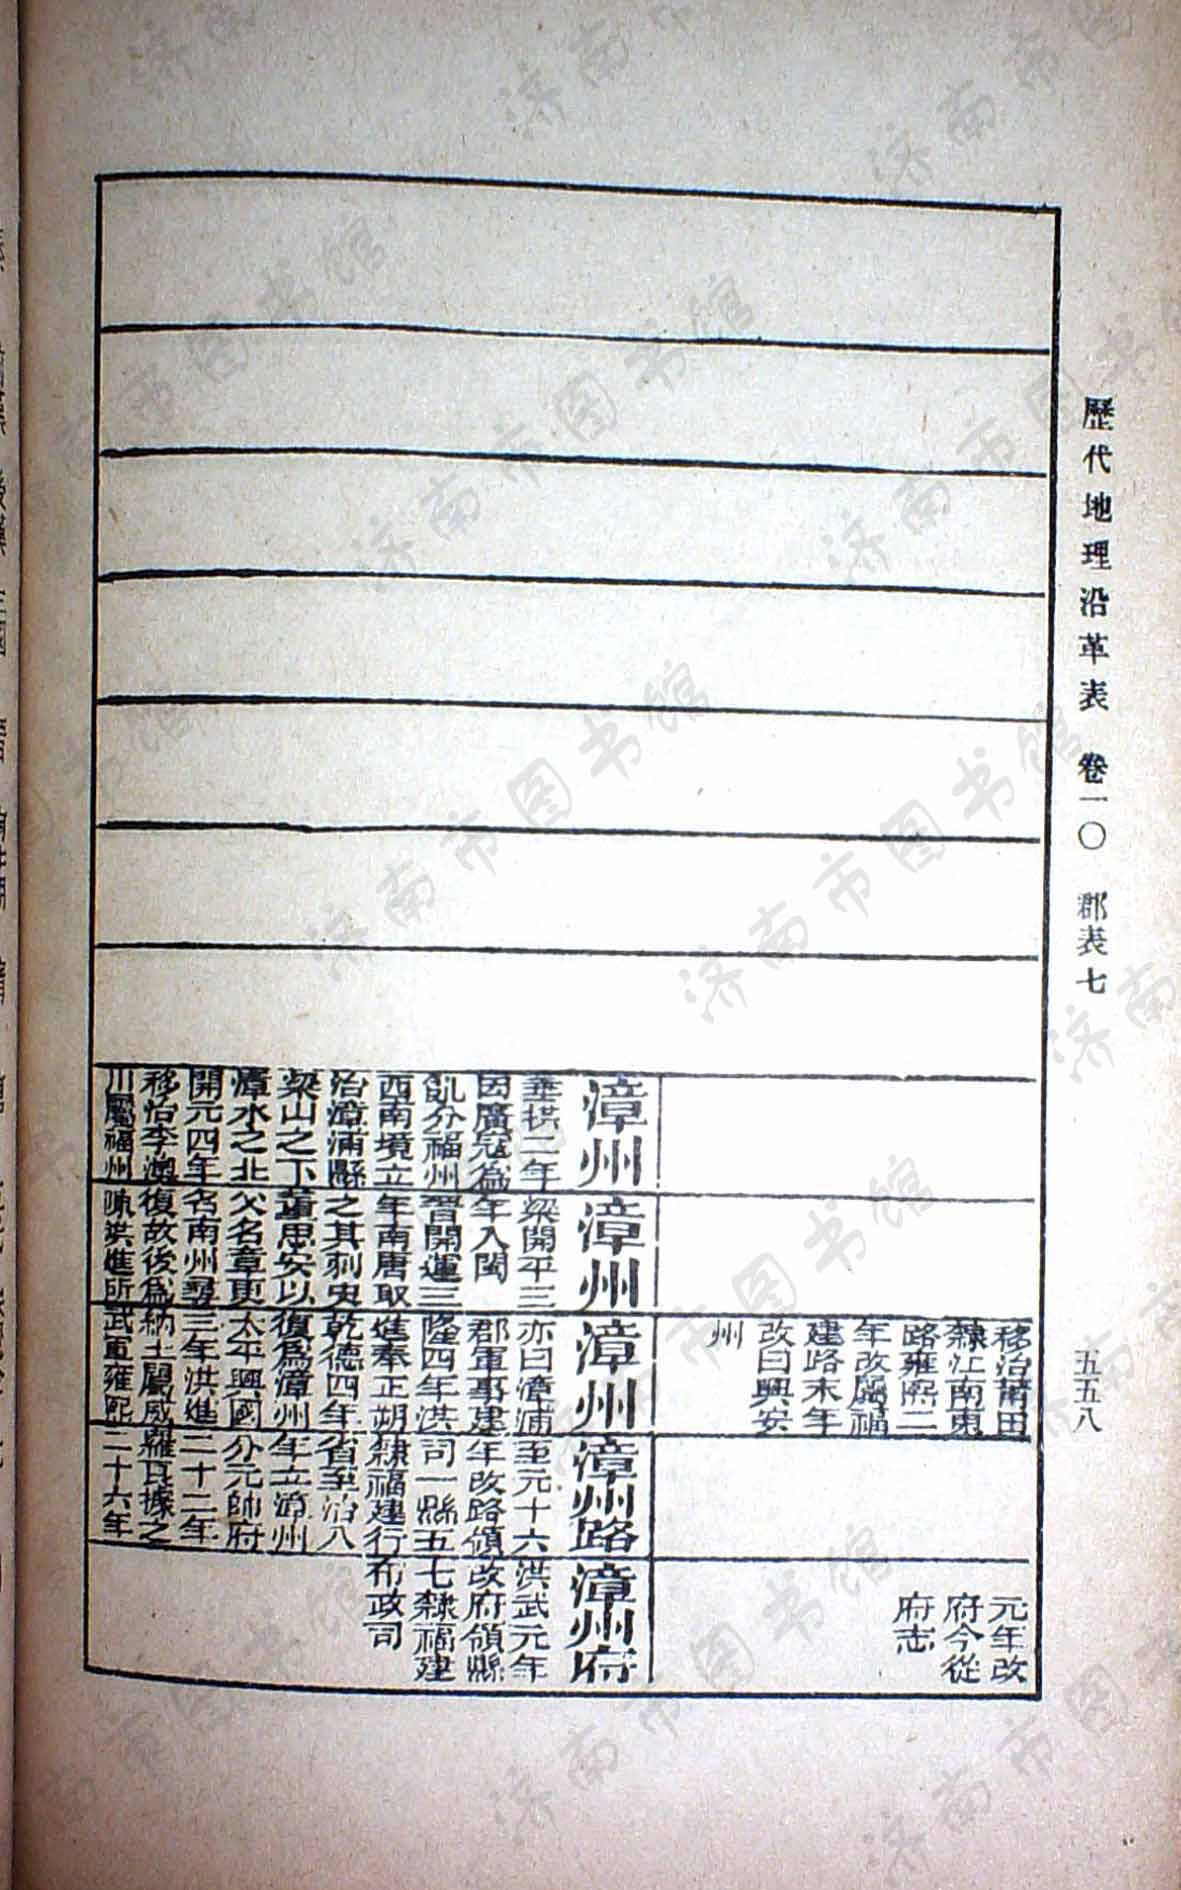 歷代地理沿革表 卷一〇 郡表七
五五八
移治莆田
隸江南東
路雍熙二
年改屬福
建路末年
改曰興安
州
元年改
府今從
府志
漳州
垂拱二年
因廣寇為
飢分福州
西南境立
治漳浦縣
梁山之下
漳水之北
開元四年
移治李澳
川屬福州
漳州
梁開平三
年入閩
晉開運三
年南唐取
之其刺史
董思安以
父名章更
名南州尋
復故後為
陳洪進所
漳州
亦曰漳浦
郡軍事建
隆四年洪
進奉正朔
乾德四年
復為漳州
太平興國
三年洪進
納土屬威
武軍雍熙
漳州路
至元十六
年改路領
司一縣五
隸福建行
省至治八
年立漳州
分元帥府
二十二年
羅良據之
二十六年
漳州府
洪武元年
改府領縣
七隸福建
布政司
济南市图书馆